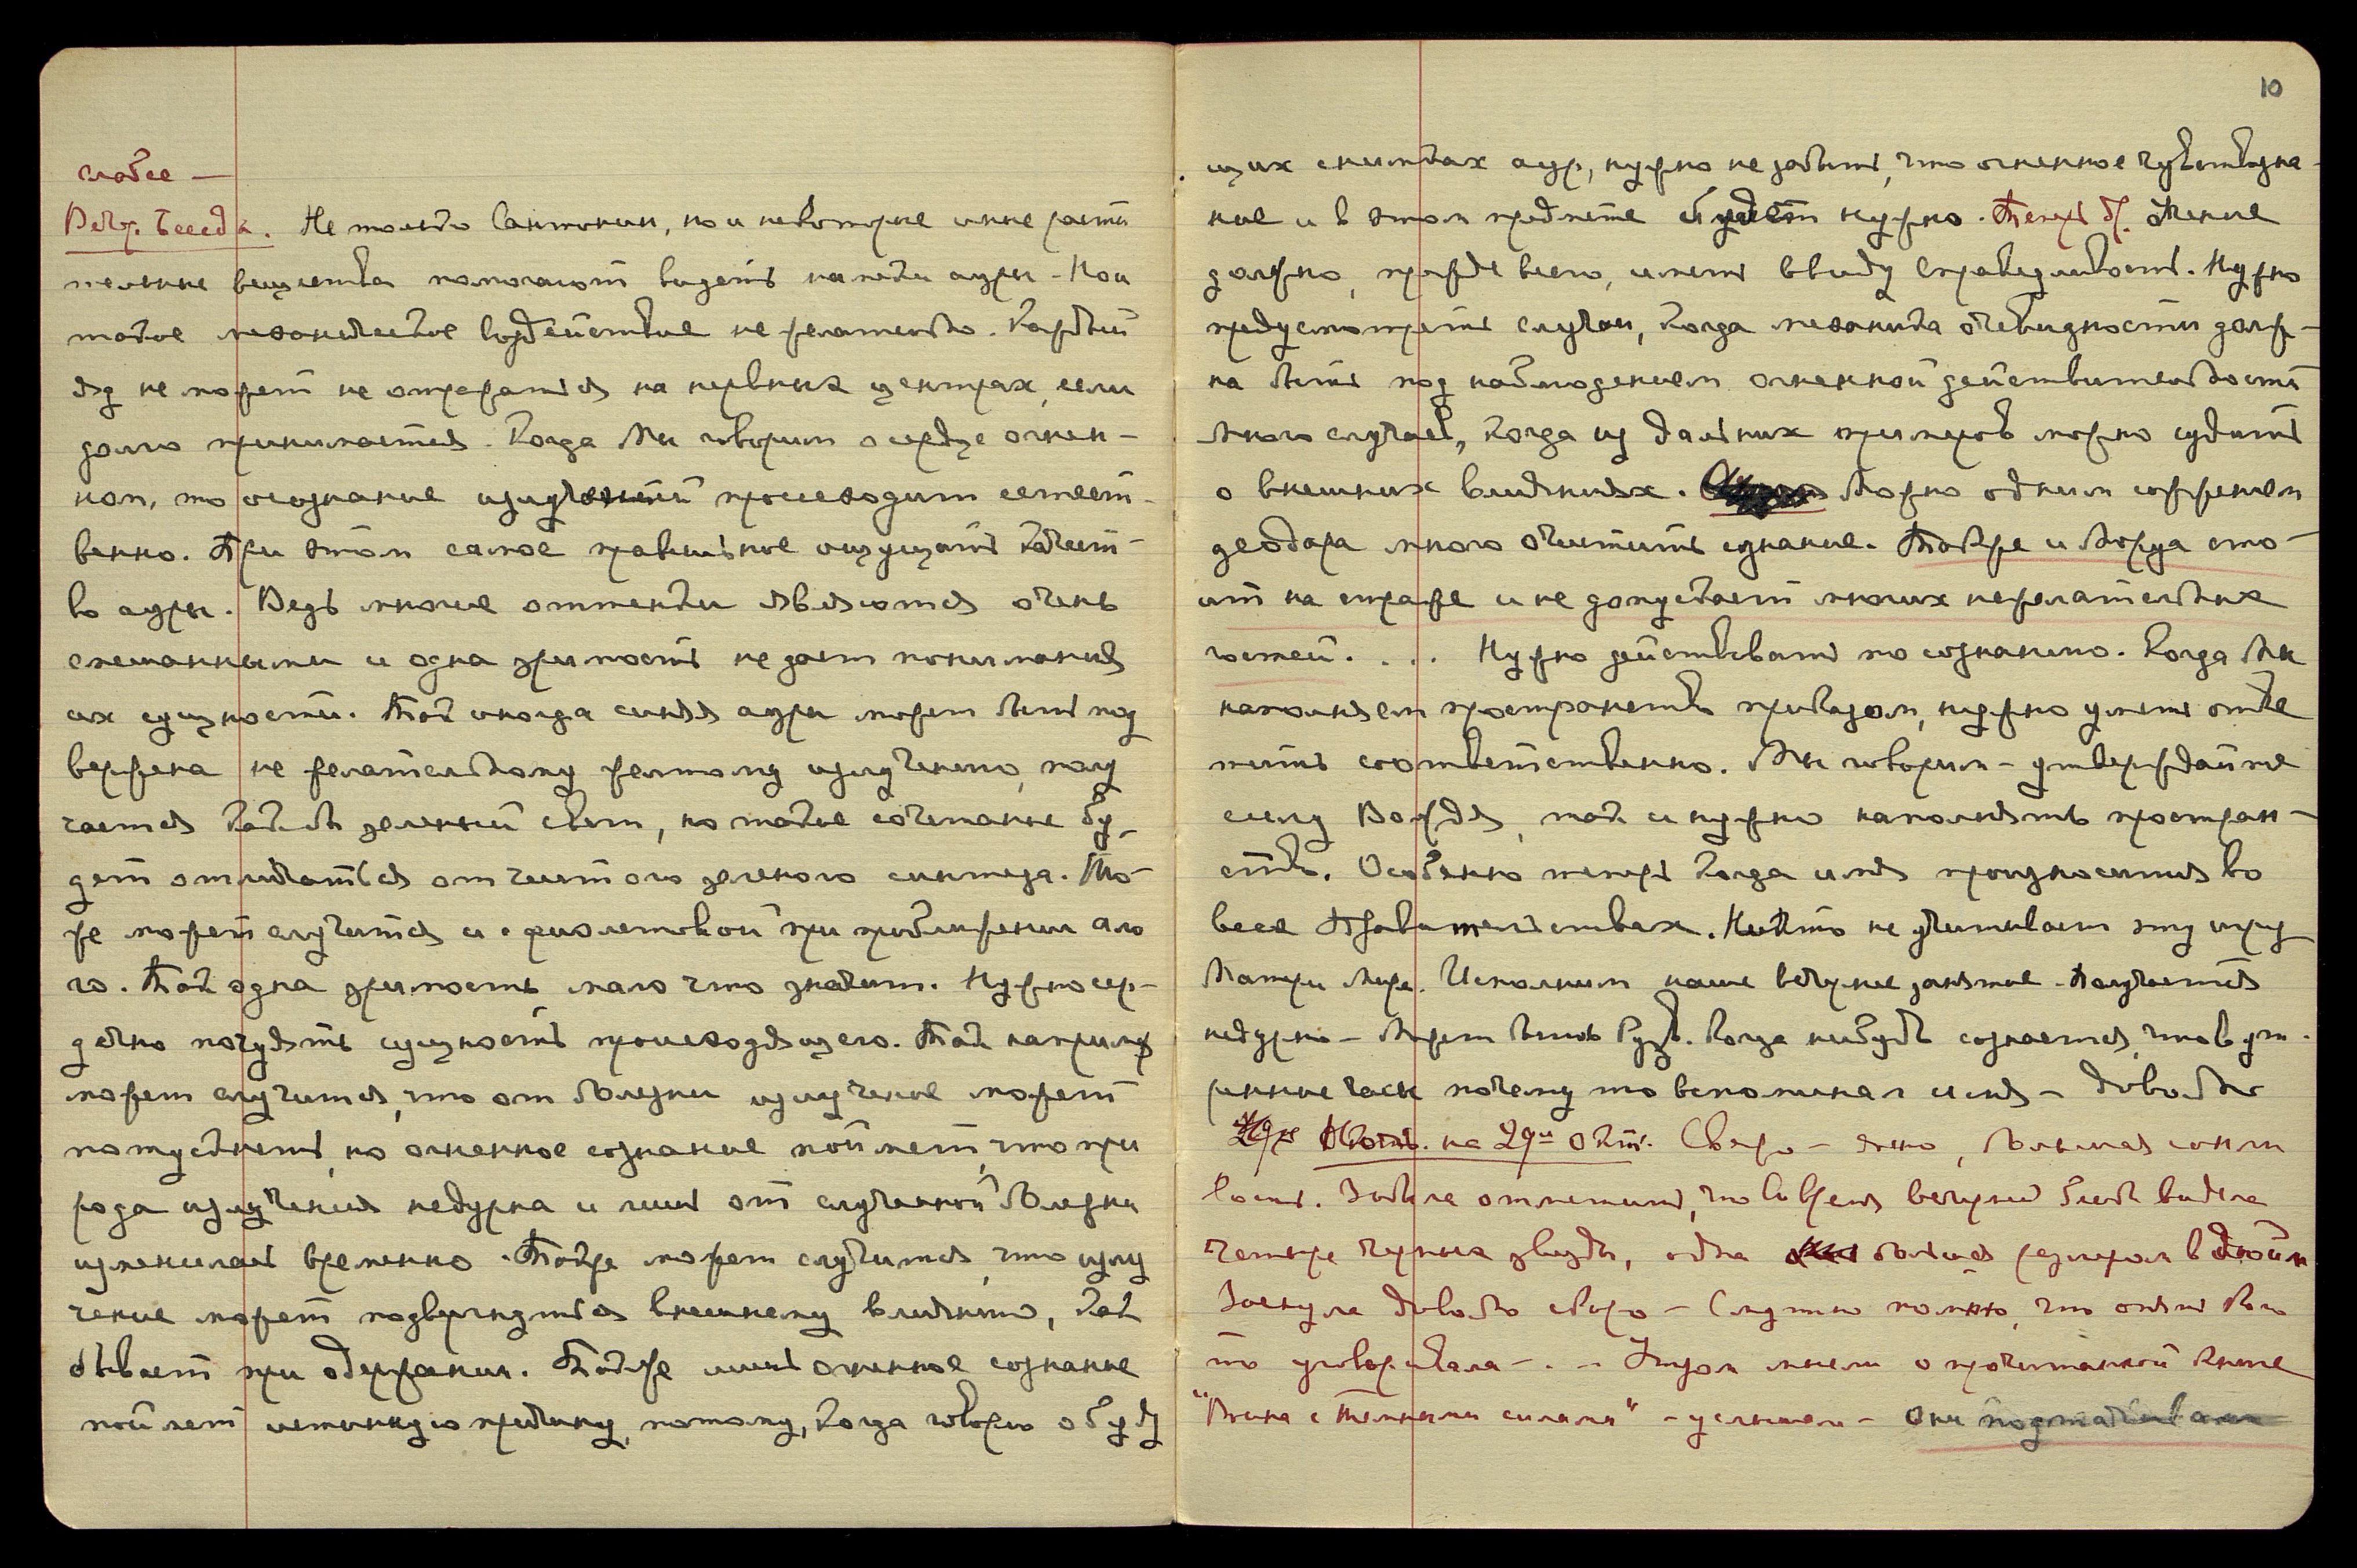 слабее —
Веч. Беседа. Не только Сантонин, но и некоторые иные расти
тельные вещества помогают видеть налёты ауры - Но и
такое механическое воздействие не желательно. Каждый
яд не может не отражаться на нервных центрах, если
долго принимается. Когда Мы говорим о сердце огнен-
ном, то осознание излучений происходит естест-
венно. При этом самое правильное ощущать качест-
во ауры. Ведь многие оттенки являются очень
смешанными и одна зримость не дает понимания
их сущности. Так иногда синяя аура может быть под
вержена не желательному желтому излучению, полу
чается как бы зеленый свет, но такое сочетание бу-
дет отличаться от чистого зеленого синтеза. То-
же может случиться и с фиолетовой при приближении ало
го. Так одна зримость мало что значит. Нужно сер-
дечно почуять сущность происходящего. Так например
может случиться, что от болезни излучение может
потускнеть, но огненное сознание поймет, что при
рода излучения недурна и лишь от случайной болезни
изменилась временно. Также может случиться, что излу
чение может подвергнуться внешнему влиянию, как
бывает при одержании. Также лишь огненное сознание
поймет истинную причину, потому, когда говорю о буду
10
щих снимках аур, нужно не забыть, что огненное чувствозна-
ние и в этом предмете будет нужно. Теперь др. Огненное
должно, прежде всего, иметь ввиду Справедливость. Нужно
предусмотреть случаи, когда механика очевидности долж-
на быть под наблюдением огненной действительности
Много случаев, когда из дальних примеров можно судить
о внешних влияниях. Можно одним сожжением
деодара много очистить сознание. Также и Мория сто-
ит на страже и не допускает многих нежелательных
гостей. . . . Нужно действовать по сознанию. Когда Мы
наполняем пространство приказом, нужно уметь отве
тить соответственно. Мы говорим - утверждайте
силу Вождя, так и нужно наполнять простран-
ство. Особенно теперь когда имя произносится во
всех Правительствах. Никто не учитывает эту игру
Матери Мира. Исполним наше вечернее занятие. Получается
недурно - Может быть Рузв. Когда нибудь сознается, что в ут-
ренние часы почему то вспоминал имя - довольно
Ночь. на 29ое Окт. Сверо - ясно, большая сонли
вость. Забыла отметить, что во время вечерней бесед видела
четыре черных звезды, одна большая размером в
Заснула довольно скоро - Смутно помню, что опять кого
то уговаривала - . - Утром мысли о прочитанной книге
"Война с темными силами" - услышала - они подтачивали